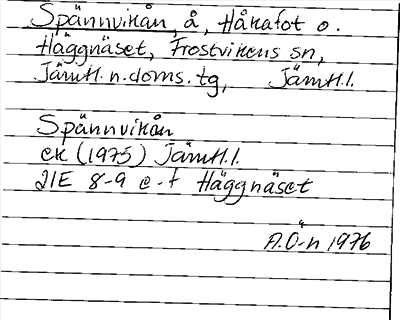 Spännvikån, å, Håkafot o.
Häggnäset, Frostvikens sn,
Jämtl. n. doms. tg, Jämtl.l.
Spännvikån
ek (1975) Jämtl.l.
21E 8-9 e-f Häggnäset
A.Ö-n 1976